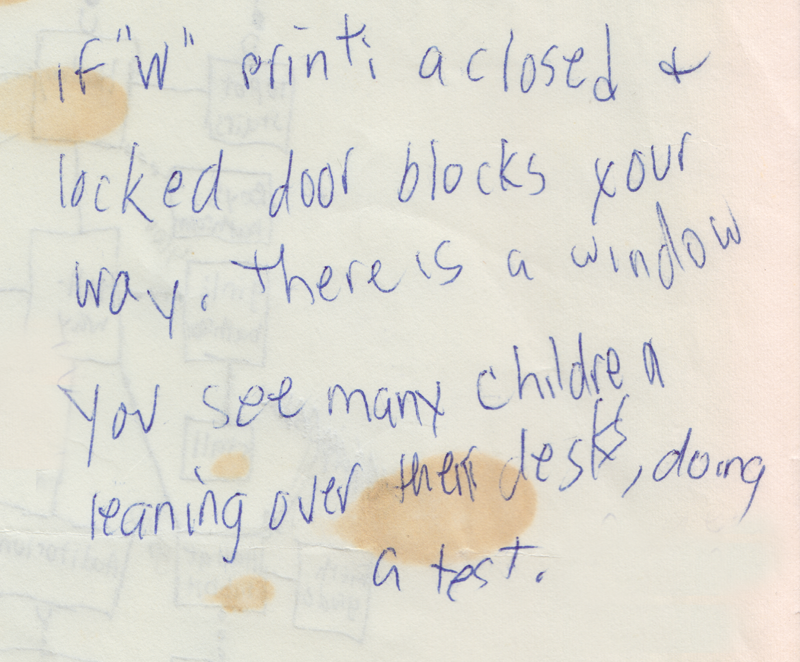 if "W" print: a closed &
locked door blocks your
way. there is a window
you see many children
leaning over their desks, doing
a test.